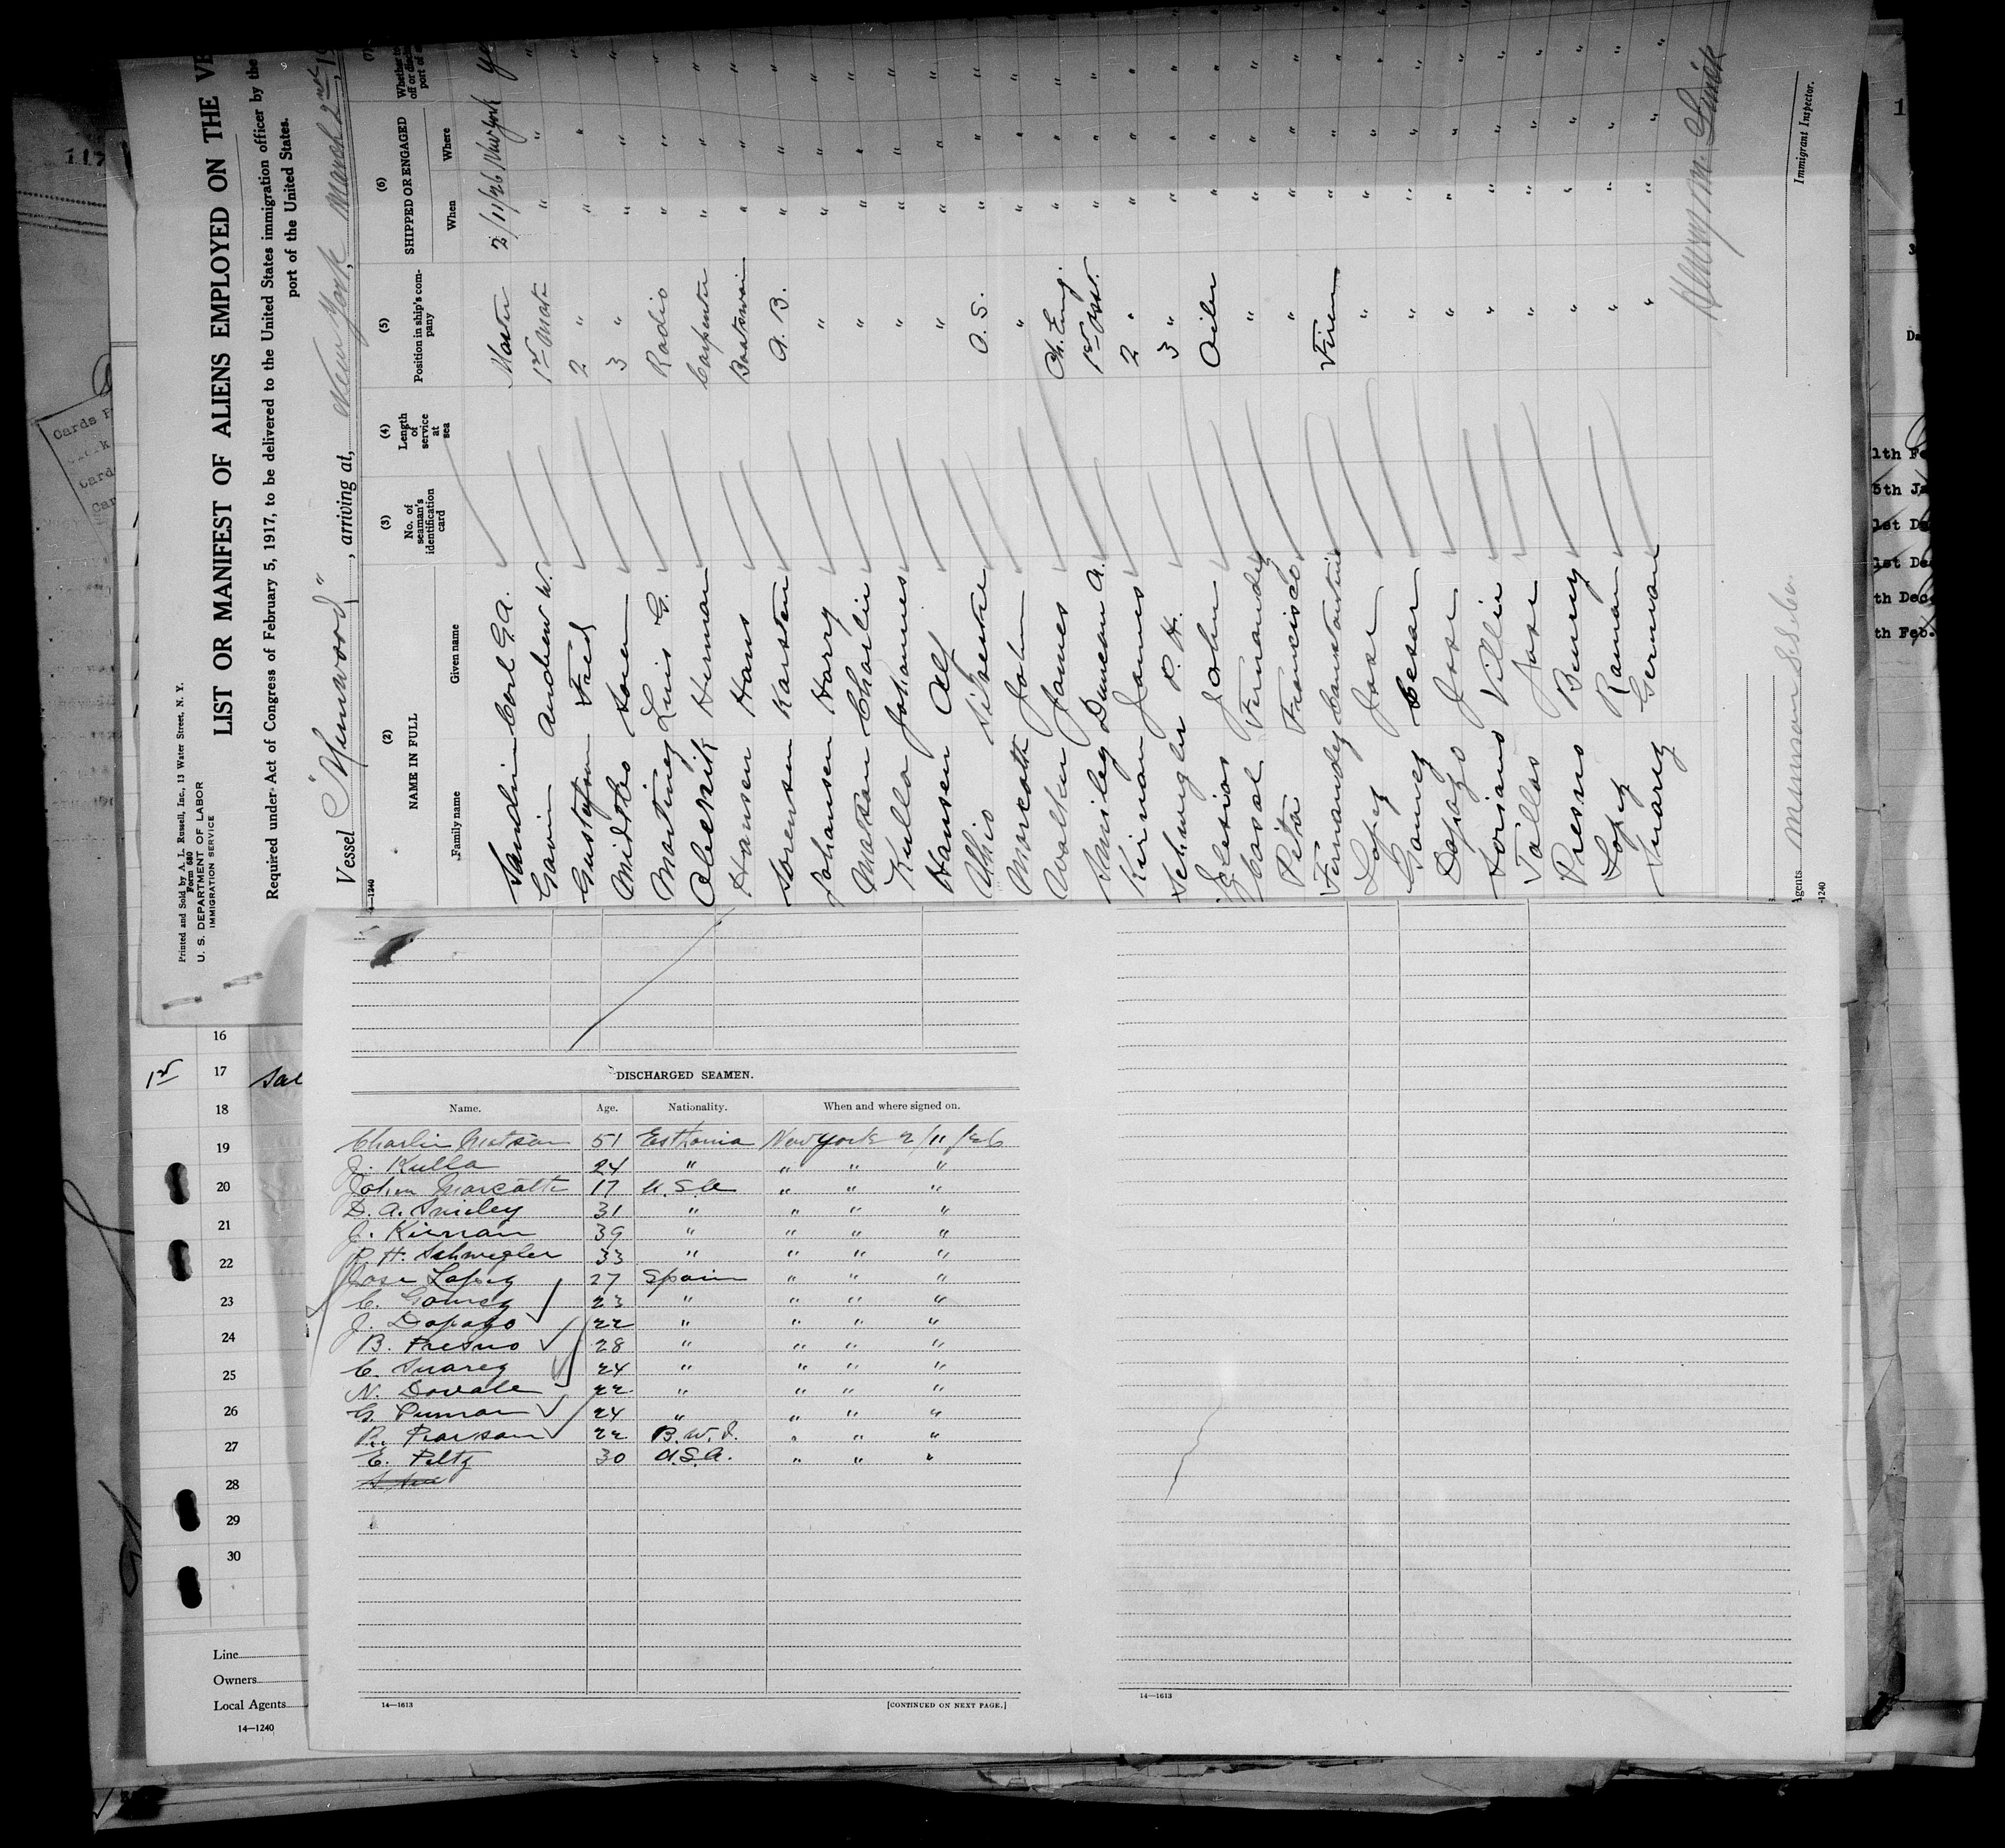 Printed and Sold by A. L. Russell, Inc., 13 Water Street, N. Y.
Form 680
U. S. DEPARTMENT OF LABOR
IMMIGRATION SERVICE
LIST OR MANIFEST OF ALIENS EMPLOYED ON THE
Required under Act of Congress of February 5, 1917, to be delivered to the United States immigration officer by the
port of the United States.
Vessel "Munwood", arriving at, New York, March 2nd
14—1240
(2)
NAME IN FULL
Family name Given name
(3)
No. of
seaman's
identification
card
(4)
Length
of
service
at
sea
(5)
Position in ship's com-
pany
(6)
SHIPPED OR ENGAGED
When Where
Sandin Carl G.A. Master 2/11/26 New York
Gavin Andrew W. 1st Mate " "
Gustafson Fred 2 " " "
Midtbo Soren 3 " " "
Martinez Luis G. Radio " "
Olbernik Herman Carpenter " "
Hansen Hans Boatswain " "
Sorensen Karsten A. B. " "
Johansen Harry " " "
Matson Charlie " " "
Kulla Johannes " " "
Hansen Alf " " "
Albio Silvestre O. S. " "
Marcotte John " " "
Walker James Ch. Eng. " "
Smiley Duncan A. 1st Asst. " "
Kirnan James 2 " " "
Schwegler R. H. 3 " " "
Iglesias John Oiler " "
Casal Fernandez " " "
Pita Francisco " " "
Fernandez Constantino Firem " "
Lopez Jose " " "
Gomez Cesar " " "
Dopazo Jose " " "
Soriano Villie " " "
Tallos Jose " " "
Presno Benny " " "
Lopez Ramon " " "
Suarez German " " "
Agents Munson S.S. Co.
Immigrant Inspector.
16
1st 17 Sal
18
19
20
21
22
23
24
25
26
27
28
29
30
Line
Owners
Local Agents
14—1240
DISCHARGED SEAMEN.
Name. Age. Nationality. When and where signed on.
Charlie Matson 51 Esthonia New York 2/11/26
J. Kulla 24 " " " "
John Marcotte 17 U.S.A " " "
D. A. Smiley 31 " " " "
J. Kirnan 39 " " " "
R. H. Schwegler 33 " " " "
Jose Lopez 27 Spain " " "
C. Gomez 23 " " " "
J. Dopazo 22 " " " "
B. Presno 28 " " " "
G. Suarez 24 " " " "
N. Dovale 22 " " " "
G. 24 " " " "
R. Pearson 22 B.W.I. " " "
E. Peltz 30 U.S.A. " " "
14—1613 [CONTINUED ON NEXT PAGE.]
14—1613